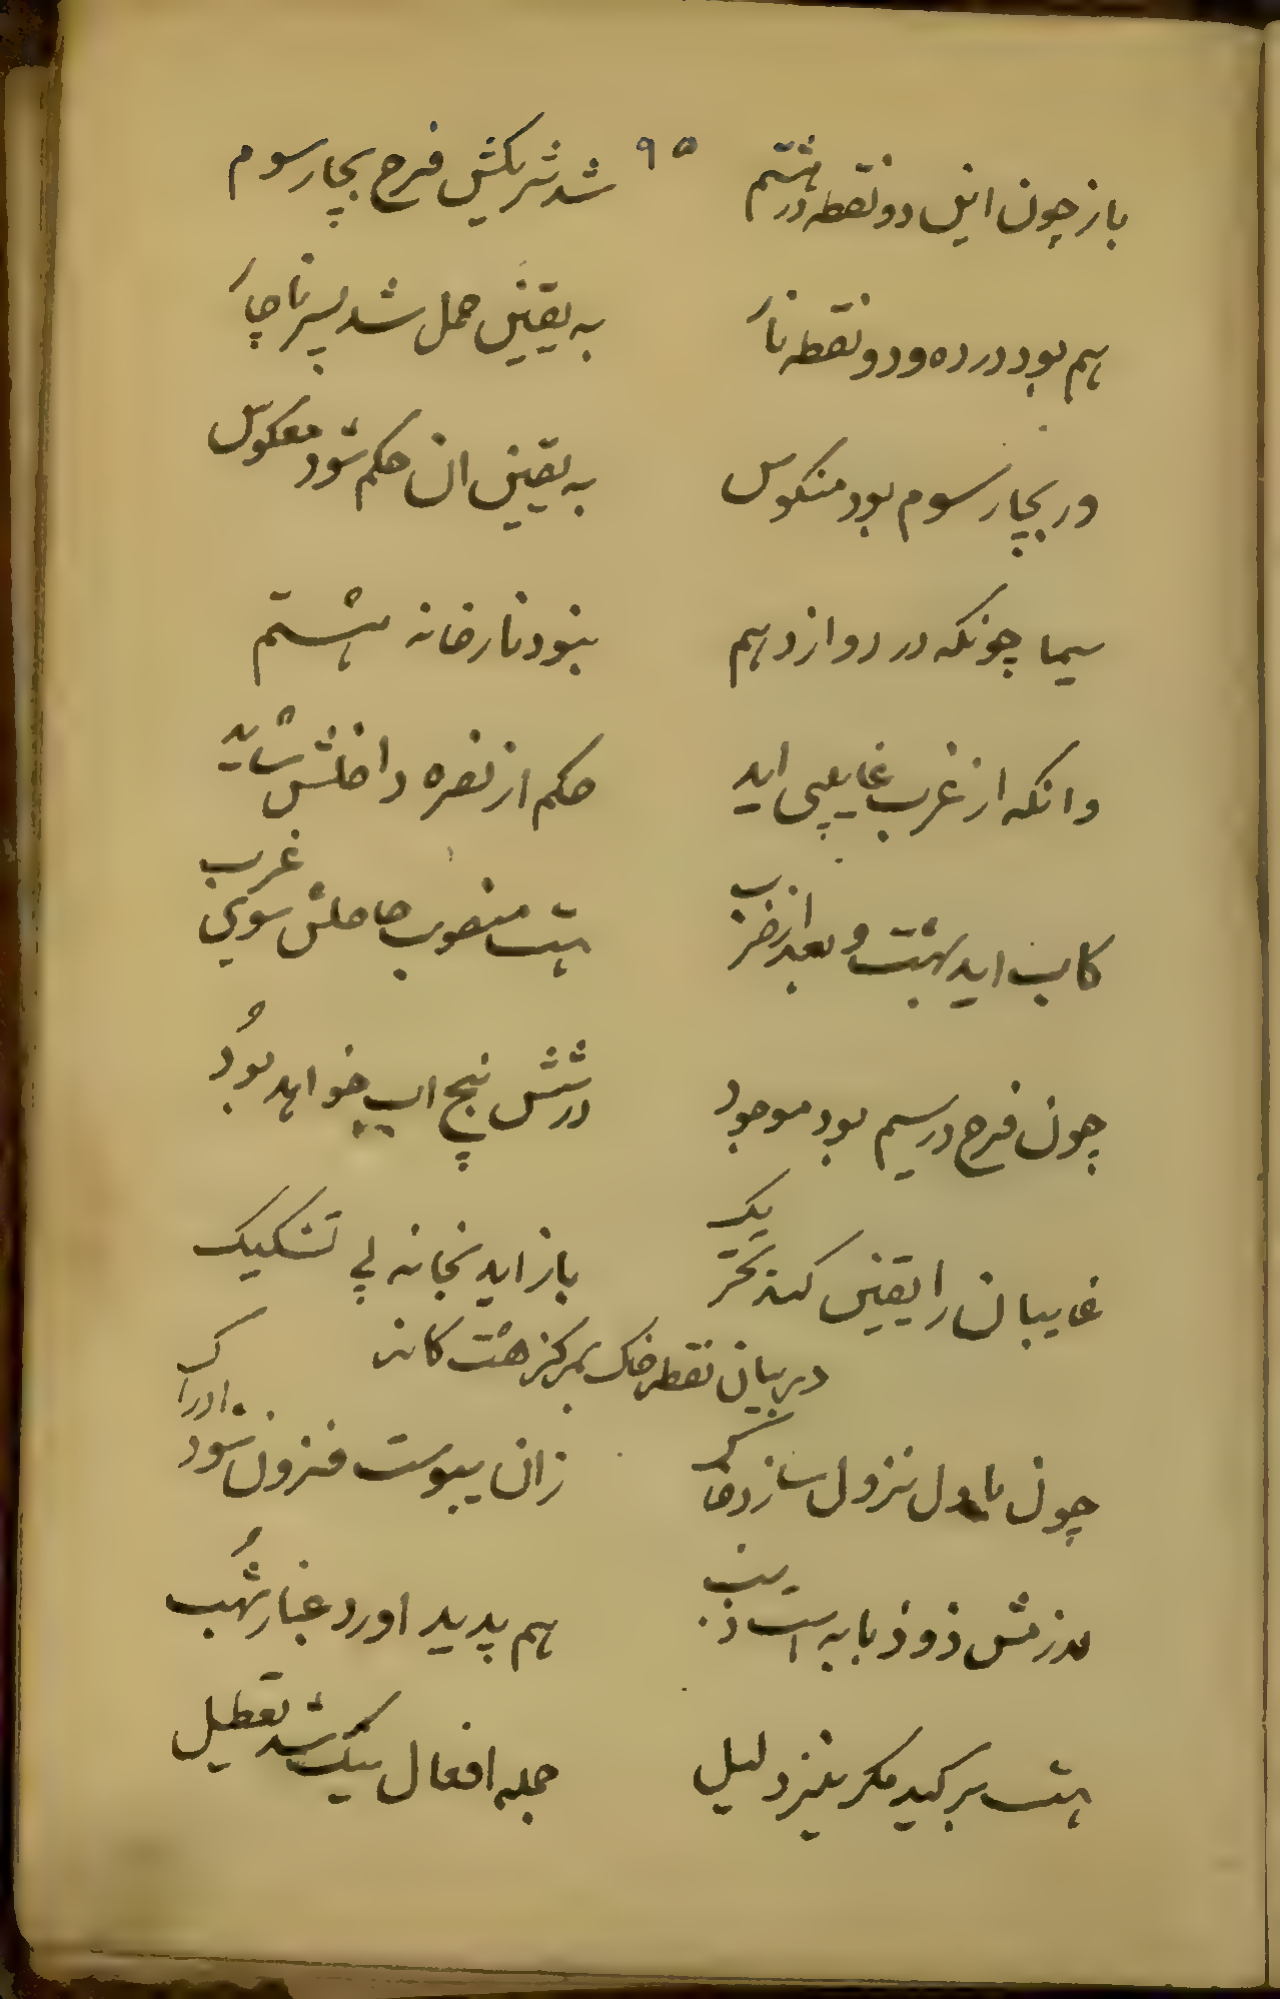 ۹۵
باز چون این دو نقطه در هشتم شد شریکش فرح بچار سوم
هم بود در ده و دو نقطه نار به یقین حمل شد پسر ناچار
ور بچار سوم بود منکوس به یقین ان حکم شود معکوس
سیما چونکه در دوازدهم بنود نار خانه هشتم
وانکه از غرب غایبی اید حکم از نصره داخلش شاید
کاب اید بهشت و بعد از ضرب هست منصوب حاملش سوی غرب
چون فرح در سیم بود موجود در شش پنج اب خواهد بود
غایبان را یقین کند تحریک باز اید بخانه بی تشکیک
در بیان نقطه خاک بمرکز هشت کانه
چون باول نزول سازد خاک زان یبوست فزون شود ادراک
ذو ذبابه است ذنب هم پدید اورد غبار شهب
هست بر کید مکر نیز دلیل جمله افعال نیک شد تعطیل